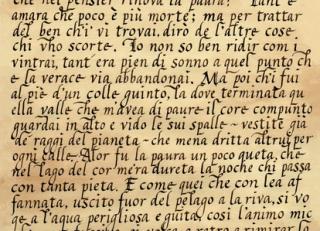 che nel pensier rinova la paura! Tant'e
amara che poco è più morte; ma per trattar
del ben ch'i vi trovai, diro de l'altre cose
chi vho scorte. Io non so ben ridir com i
vintrai, tant era pien di sonno a quel punto ch
e la verace via abbandonai. Ma poi ch'i fui
al piè d'un colle quinto, la dove terminata qu
ella valle che m'avea di paure il core compunto
guardai in alto e vido le sui spalle - vestite già
de' raggi del pianeta - che mena dritta altrui per
ogni calle. Alor fu la paura un poco queta, che
nel lago del cor m'era dureta la noche chi passa
con tanta pieta. E come quei che con lea af
fannata, uscito fuor del pelago a la riva, si vo
ge a l'aqua perigliosa e guita, cosi l'animo mic
a retro a rimirar lo